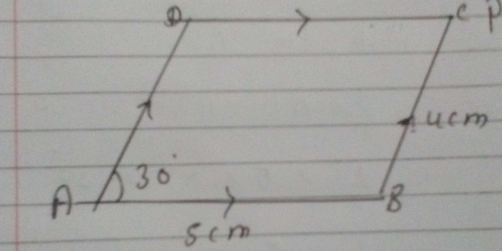 D
C P
4cm
30°
A
B
5cm